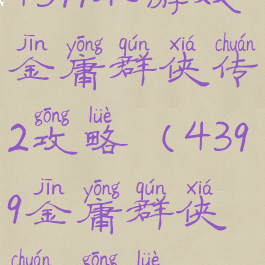 jīn yōng qún xiá chuán
金庸群侠传
gōng lüè
2攻略（439
jīn yōng qún xiá
9金庸群侠
chuán gōng lüè